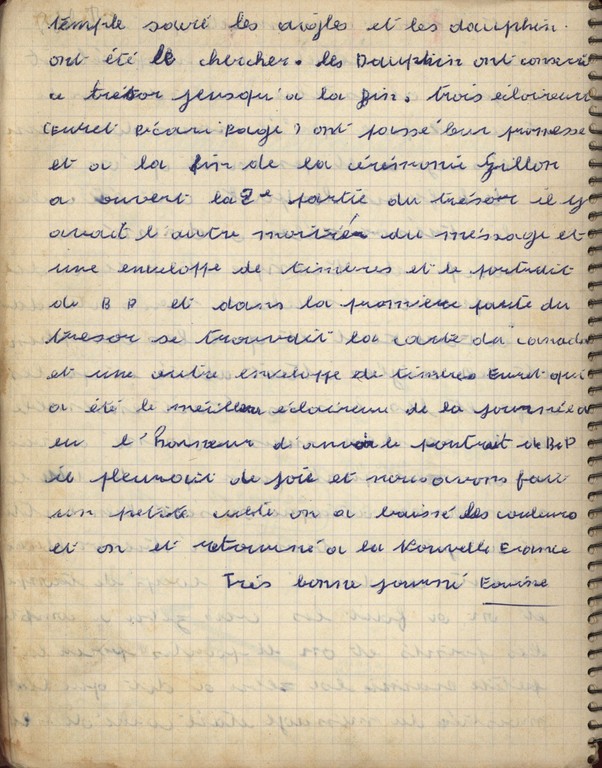 temple sacré les aigles et les dauphin.
ont été le chercher. les Dauphin ont conservé
ce trésor jeusqu'a la fin. trois éclaireurs
(Euret Picari Page) ont passé leur promesse
et a la fin de la cérémonie Grillon
a ouvert la 2e partie du trésor il y
avait l'autre moitiér du méssage et
une enveloppe de timbres et le portrait
de B P et dans la première partie du
tresor se trouvait la carte du canada
et une autre enveloppe de timbres Euret qui
a été le meilleur éclaireur de la journée a
eu l'honneur d'avoir le portrait de B.P
il pleurait de joie et nous avons fait
un petite on a baissé les couleurs
et on et retourné a la Nouvelle France
Très bonne journé